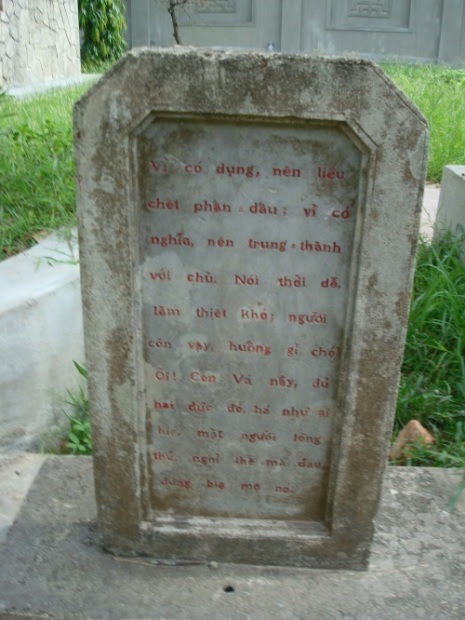 Vì có dụng, nên liều
chết phấn - đấu; vì có
nghĩa, nên trung - thành
với chủ. Nói thời dễ,
làm thiệt khó; người
còn vậy, huống gì chó!
Ôi! Con Vá nầy, đủ
hai đức đó, há như ai
kia, mặt người lòng
thú, nghỉ thế mà đau,
dựng bia mộ nó.